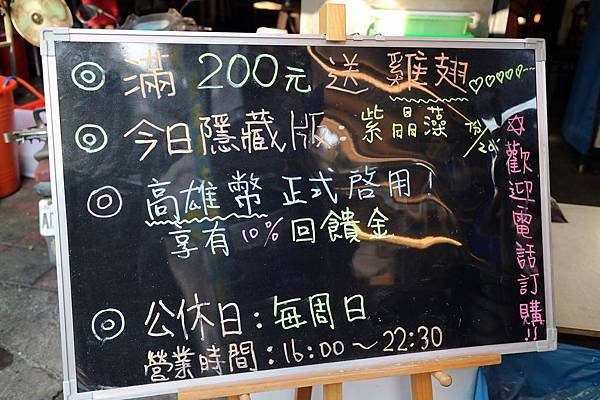 ◎ 滿 200元 送 雞翅 ♡♡♡♡♡...
◎ 今日隱藏版: 紫晶藻 份/20
◎ 高雄幣 正式啓用!
享有10%回饋金
◎ 公休日:每周日
營業時間:16:00~22:30
☆歡迎電話訂購!!